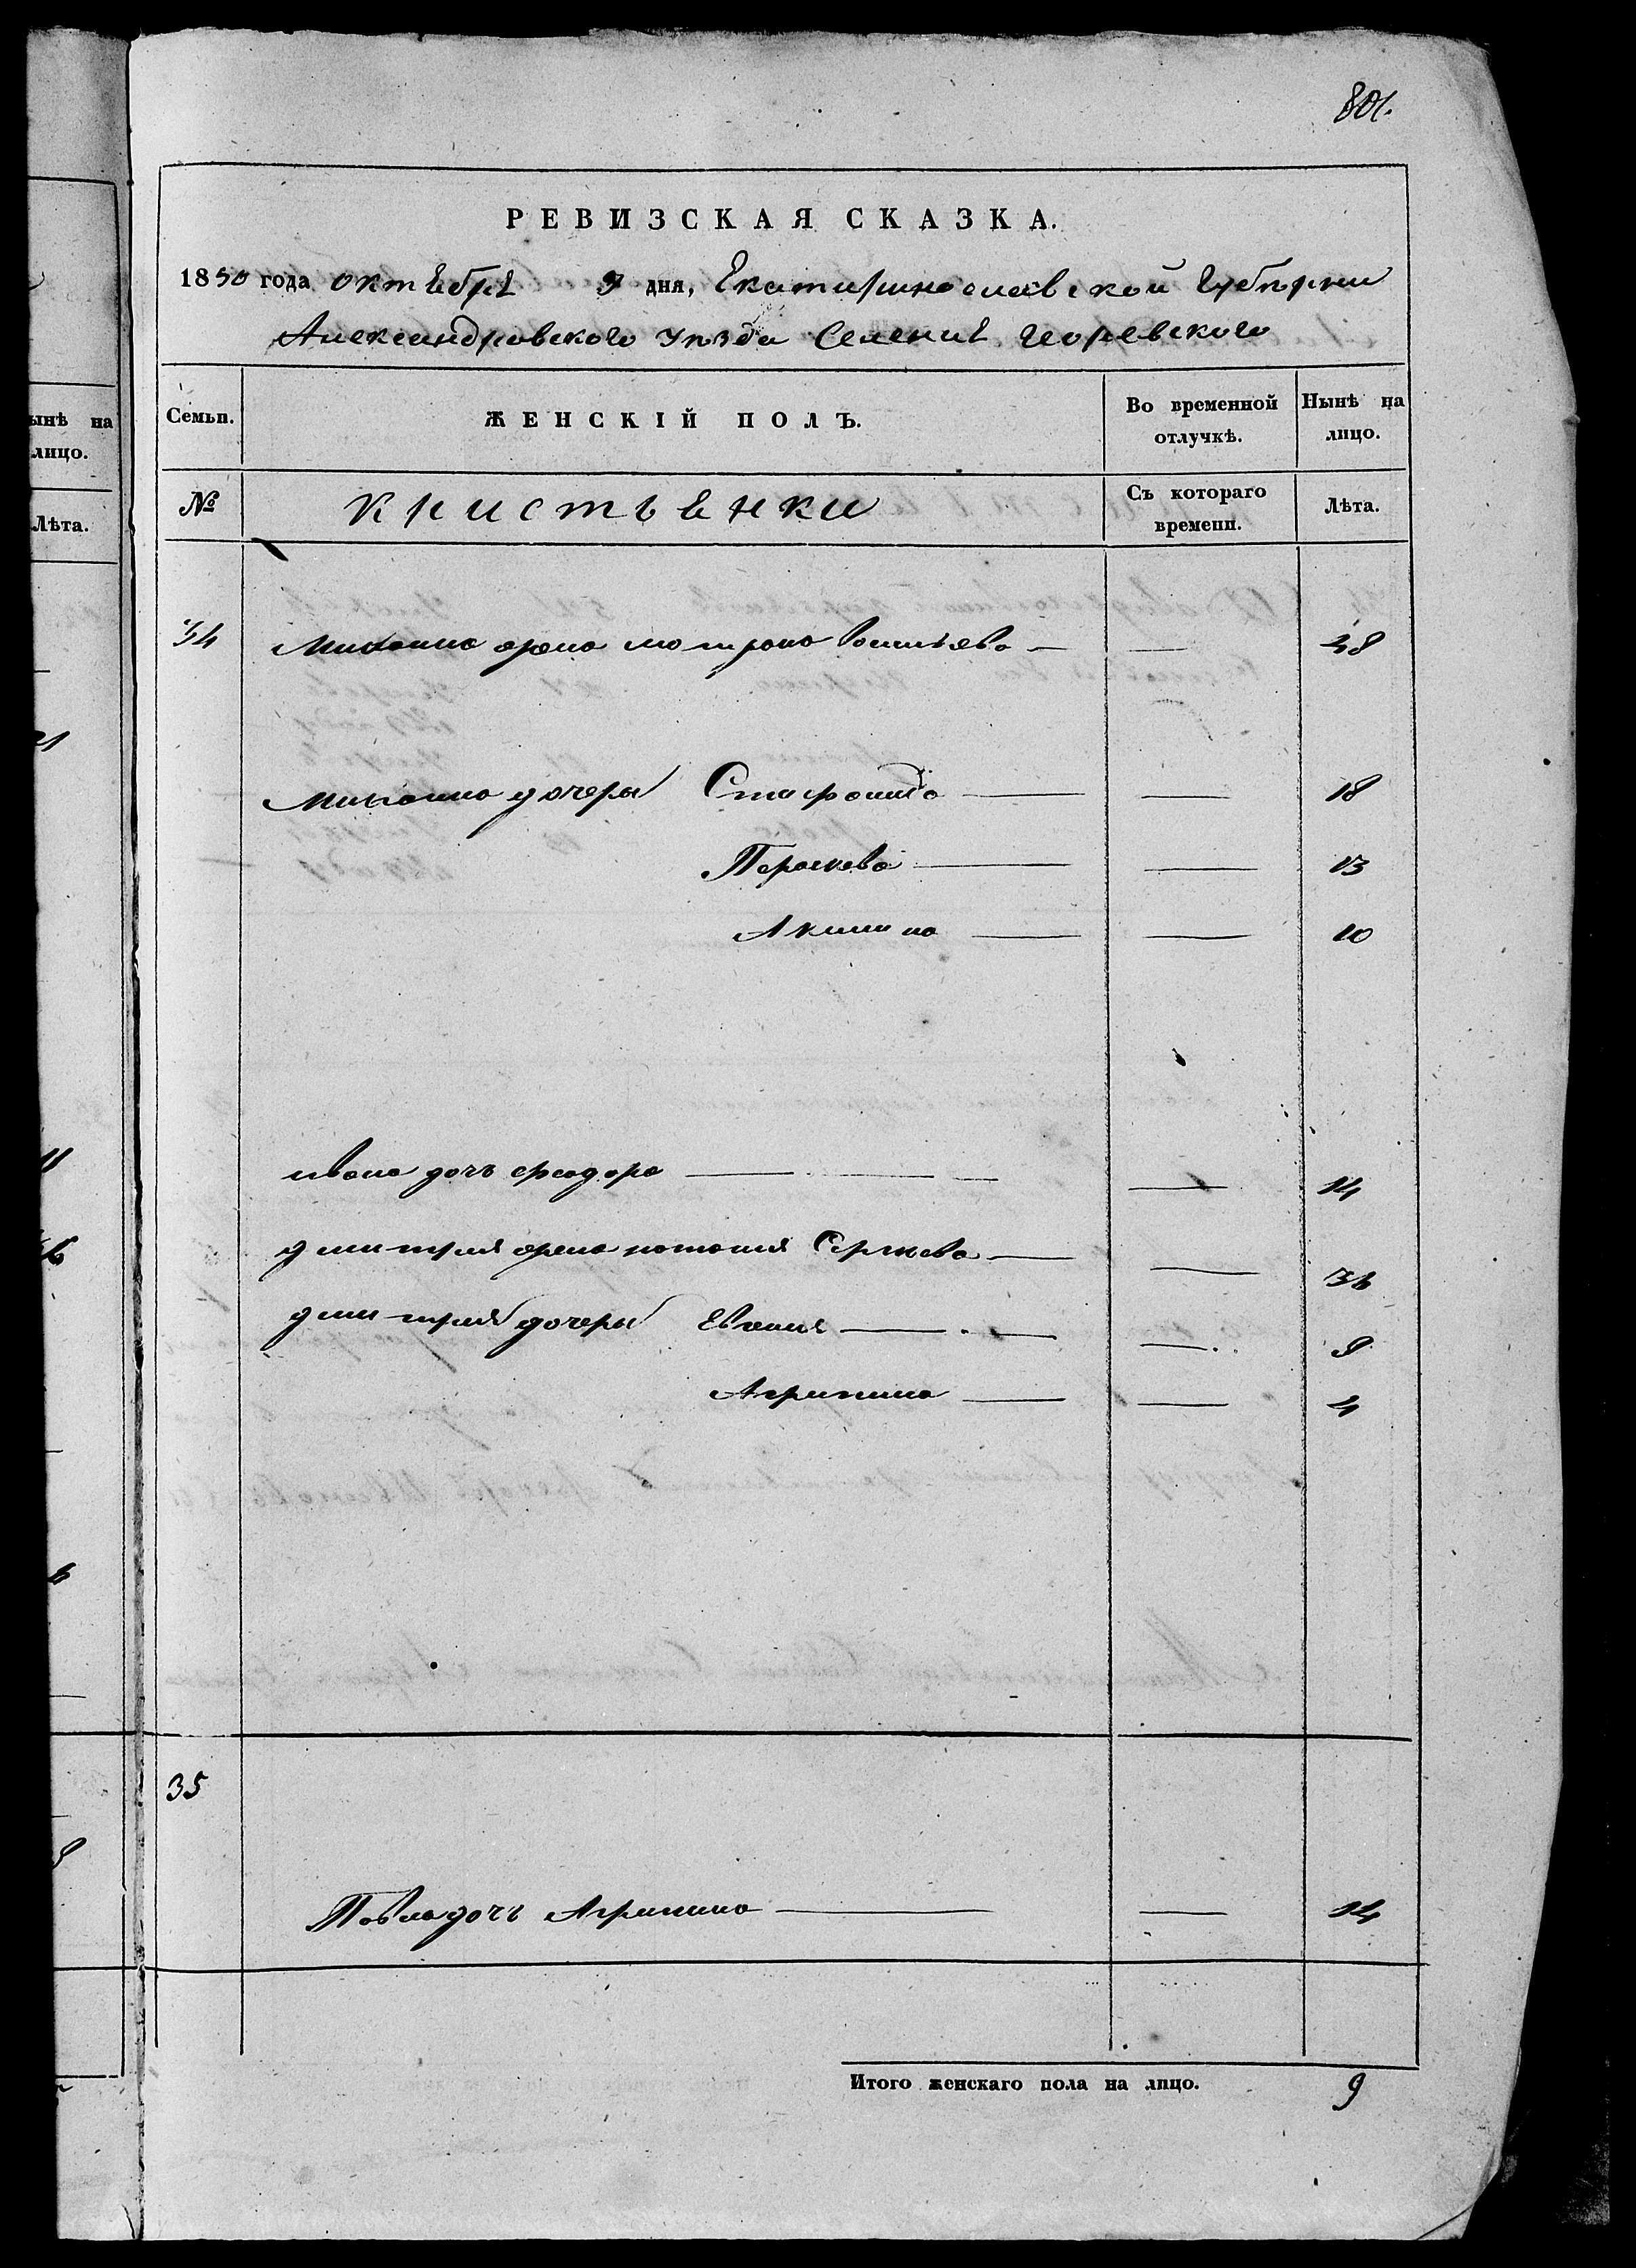 801.
РЕВИЗСКАЯ СКАЗКА.
1850 года октября 9 дня, Екатеринославской губернии
Александровского уезда Селения Георевского
Семьи. ЖЕНСКІЙ ПОЛЪ. Во временной отлучкѣ. Нынѣ на лицо.
№ кристьянки Съ котораго времени. Лѣта.
34 Михаила жена матрона васильева — — 48
Михаила дочеры — — 18
Параскева — — 13
Акилина — — 10
ивана дочь феодора — — 14
дмитрия жена наталия — — 36
дмитрия дочеры — — 9
Агрипина — — 4
35
Павла дочь Агрипина — — 14
Итого женскаго пола на лицо. 9
ынѣ на
лицо.
Лѣта.